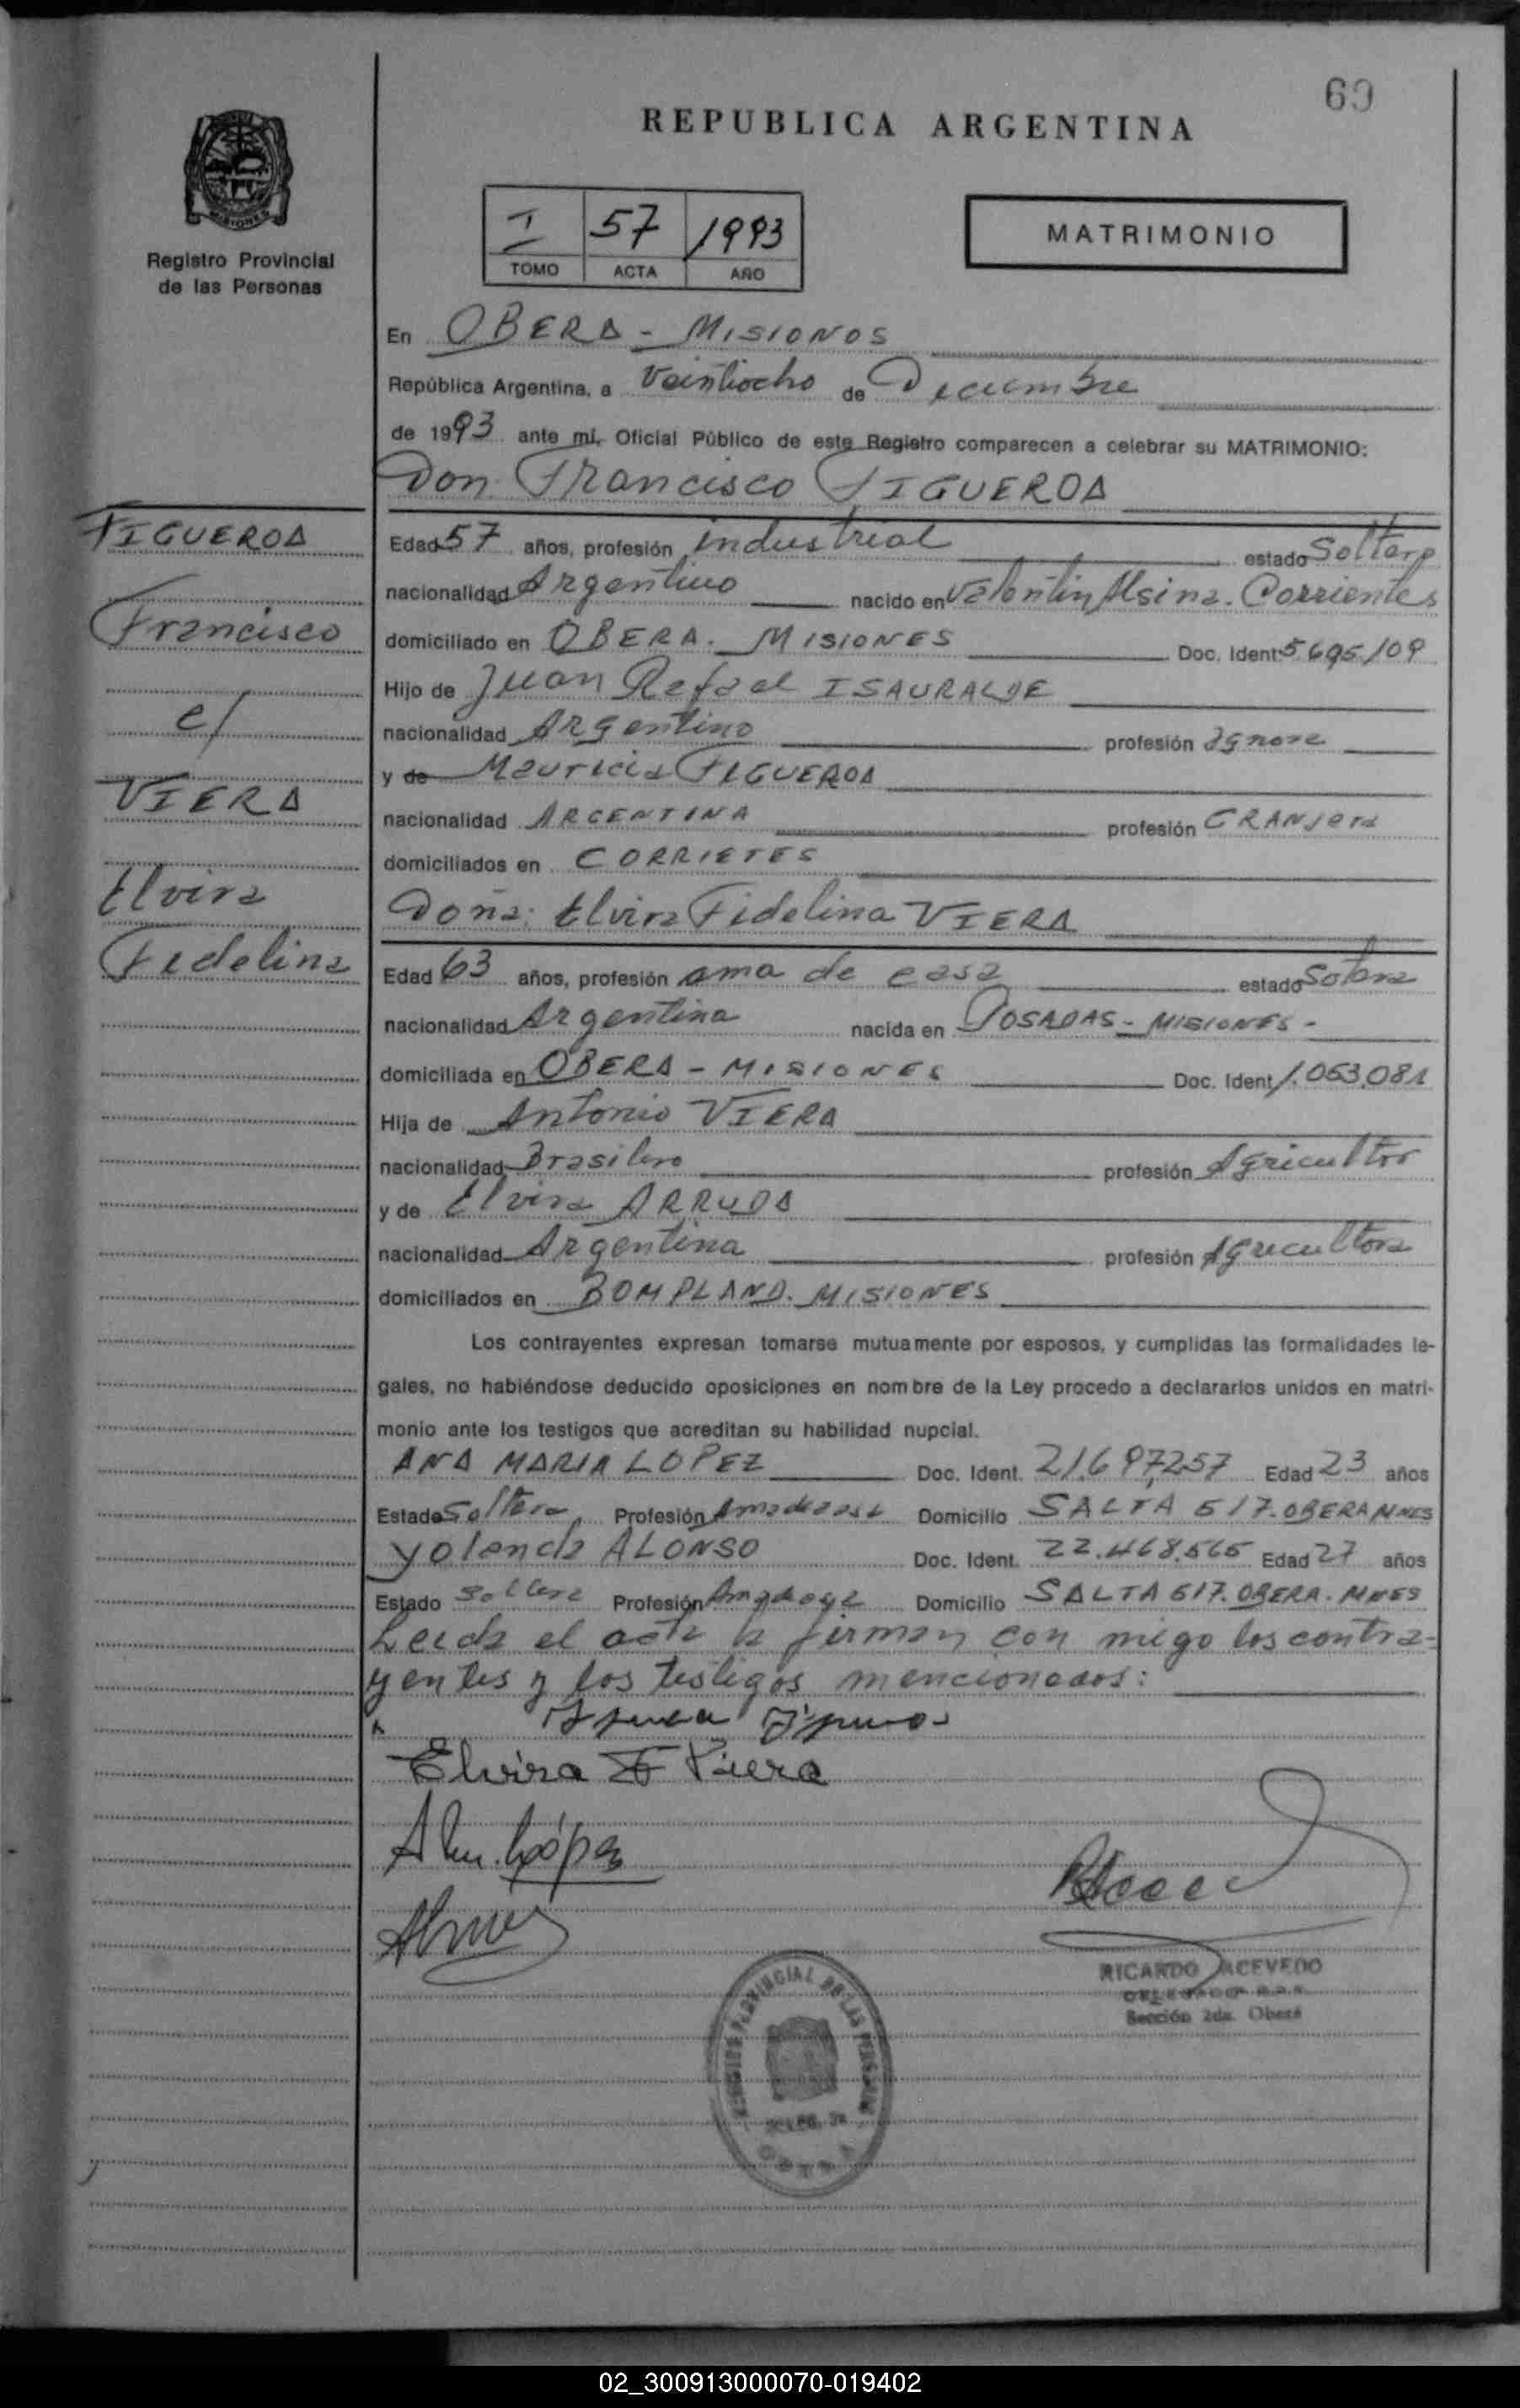 69
REPUBLICA ARGENTINA
I 57 1993
TOMO ACTA AÑO
MATRIMONIO
MISIONES
Registro Provincial
de las Personas
FIGUEROA
Francisco
c/
VIERA
Elvira
Fedelina
En OBERA - MISIONOS
República Argentina, a Veintiocho de Diciembre
de 1993 ante mí, Oficial Público de este Registro comparecen a celebrar su MATRIMONIO:
Don Francisco FIGUEROA
Edad 57 años, profesión industrial estado Soltero
nacionalidad Argentino nacido en Valentin Alsina. Corrientes
domiciliado en OBERA. MISIONES Doc. Ident. 5.695.109
Hijo de Juan Rafael ISAURALDE
nacionalidad Argentino profesión Ignora
y de Mauricia FIGUEROA
nacionalidad ARGENTINA profesión GRANJera
domiciliados en CORRIETES
Doña: Elvira Fidelina VIERA
Edad 63 años, profesión ama de casa estado Soltera
nacionalidad Argentina nacida en POSADAS - MISIONES -
domiciliada en OBERA - MISIONES Doc. Ident. 1.053.081
Hija de Antonio VIERA
nacionalidad Brasilero profesión Agricultor
y de Elvira ARRUDA
nacionalidad Argentina profesión Agricultora
domiciliados en BOMPLAND. MISIONES
Los contrayentes expresan tomarse mutuamente por esposos, y cumplidas las formalidades le-
gales, no habiéndose deducido oposiciones en nombre de la Ley procedo a declararlos unidos en matri-
monio ante los testigos que acreditan su habilidad nupcial.
ANA MARIA LOPEZ Doc. Ident. 21.697,257 Edad 23 años
Estado Soltera Profesión Ama de casa Domicilio SALTA 517. OBERA MNES
Yolanda ALONSO Doc. Ident. 22.468.565 Edad 27 años
Estado Soltera Profesión Domicilio SALTA 617. OBERA. MNES
Leida el acta la firman con migo los contra-
yentes y los testigos mencionados:
Elvira F Viera
López
RICARDO ACEVEDO
Sección 2da. Oberá
REGISTRO PROVINCIAL DE LAS PERSONAS
OBERA
02_300913000070-019402